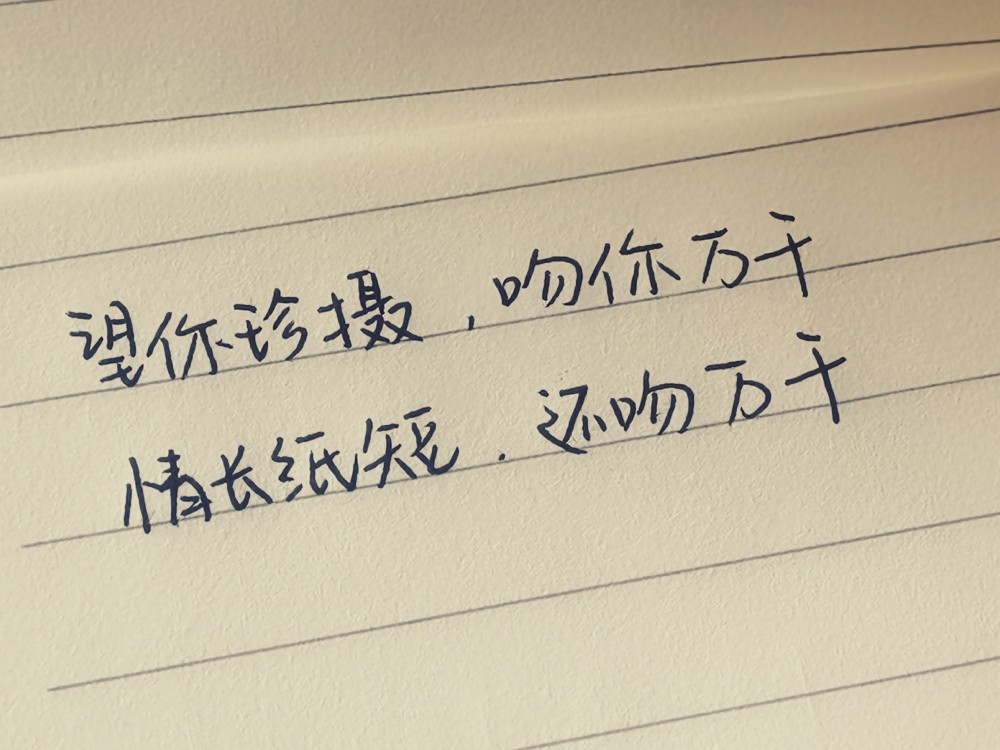 望你珍摄,吻你万千
情长纸短.还吻万千